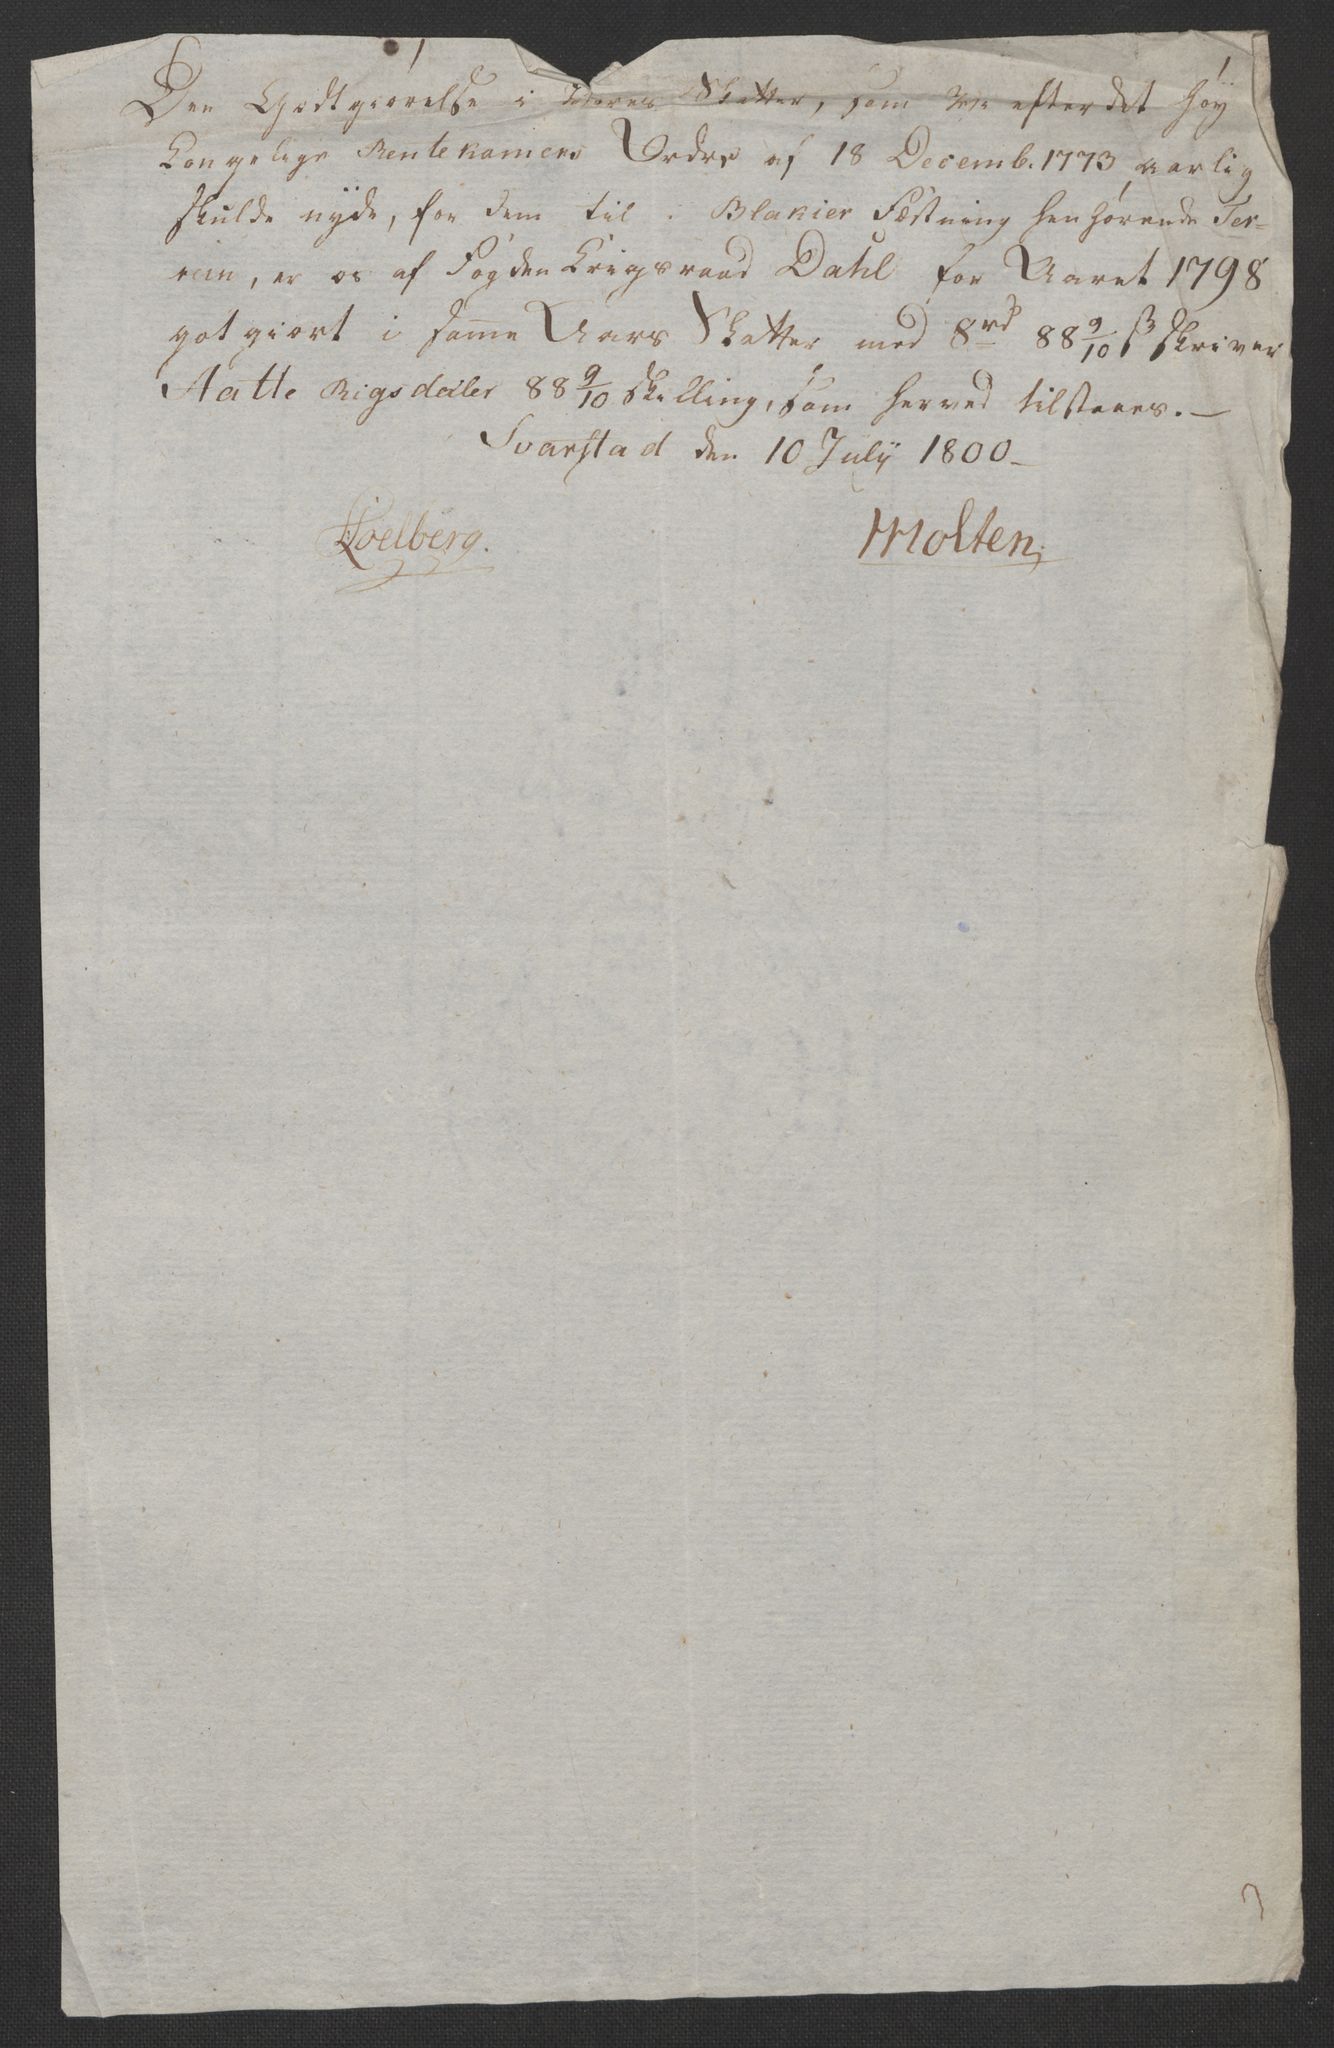 Den Godtgiørelse i Vores Skatter, som Vi efter det høy
Kongelige Rentekamers Ordre af 18 Decemb. 1773 aarlig
skulde nyde, for dem til Blakier Fæstning henhørende Ter-
rein, er os af Fogden Krigsraad Dahl for Aaret 1798
godtgiort i samme Aars Skatter med 8 rd 88 9/10 ß skriver
Aatte Rigsdaler 88 9/10 Skilling, som herved tilstaaes. —
Svarstad den 10 July 1800 —
Koelberg. Molten.